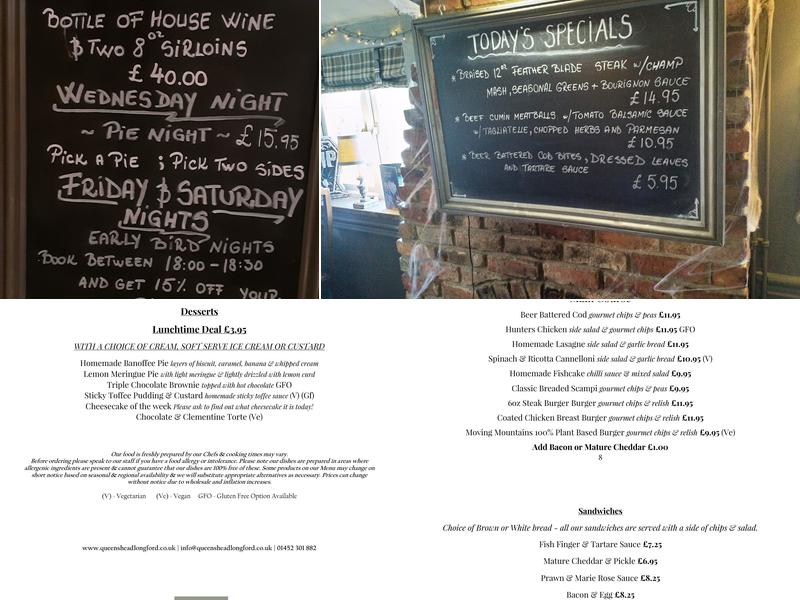 BOTTLE OF HOUSE WINE
& TWO 8oz SIRLOINS
£ 40.00
WEDNESDAY NIGHT
~ PIE NIGHT ~ £15.95
PICK A PIE ; PICK TWO SIDES
FRIDAY & SATURDAY
NIGHTS
EARLY BIRD NIGHTS
BOOK BETWEEN 18:00 - 18:30
AND GET 15% OFF YOUR
TODAY'S SPECIALS
* BRAISED 12oz FEATHER BLADE STEAK w/CHAMP
MASH, SEASONAL GREENS + BOURIGNON SAUCE
£14.95
* BEEF CUMIN MEATBALLS w/TOMATO BALSAMIC SAUCE
w/TAGLIATELLE, CHOPPED HERBS AND PARMESAN
£10.95
* BEER BATTERED COD BITES, DRESSED LEAVES
AND TARTARE SAUCE
£5.95
Desserts
Lunchtime Deal £3.95
WITH A CHOICE OF CREAM, SOFT SERVE ICE CREAM OR CUSTARD
Homemade Banoffee Pie layers of biscuit, caramel, banana & whipped cream
Lemon Meringue Pie with light meringue & lightly drizzled with lemon curd
Triple Chocolate Brownie topped with hot chocolate GFO
Sticky Toffee Pudding & Custard homemade sticky toffee sauce (V) (Gf)
Cheesecake of the week Please ask to find out what cheesecake it is today!
Chocolate & Clementine Torte (Ve)
Our food is freshly prepared by our Chefs & cooking times may vary.
Before ordering please speak to our staff if you have a food allergy or intolerance. Please note our dishes are prepared in areas where
allergenic ingredients are present & cannot guarantee that our dishes are 100% free of these. Some products on our Menu may change on
short notice based on seasonal & regional availability & we will substitute appropriate alternatives as necessary. Prices can change
without notice due to wholesale and inflation increases.
(V) - Vegetarian (Ve) - Vegan GFO - Gluten Free Option Available
www.queensheadlongford.co.uk | info@queensheadlongford.co.uk | 01452 301 882
Beer Battered Cod gourmet chips & peas £11.95
Hunters Chicken side salad & gourmet chips £11.95 GFO
Homemade Lasagne side salad & garlic bread £11.95
Spinach & Ricotta Cannelloni side salad & garlic bread £10.95 (V)
Homemade Fishcake chilli sauce & mixed salad £9.95
Classic Breaded Scampi gourmet chips & peas £9.95
6oz Steak Burger Burger gourmet chips & relish £11.95
Coated Chicken Breast Burger gourmet chips & relish £11.95
Moving Mountains 100% Plant Based Burger gourmet chips & relish £9.95 (Ve)
Add Bacon or Mature Cheddar £1.00
8
Sandwiches
Choice of Brown or White bread - all our sandwiches are served with a side of chips & salad.
Fish Finger & Tartare Sauce £7.25
Mature Cheddar & Pickle £6.95
Prawn & Marie Rose Sauce £8.25
Bacon & Egg £8.25